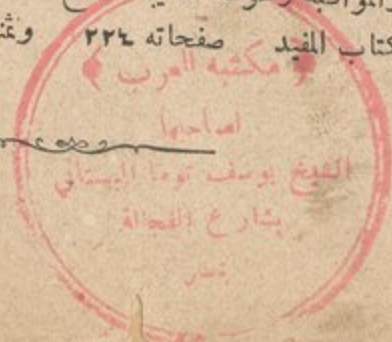 كتاب المفيد صفحاته ٢٢٤
مكتبه العرب
لصاحبها
الشيخ يوسف توما البستاني
بشارع الفجالة
بمصر